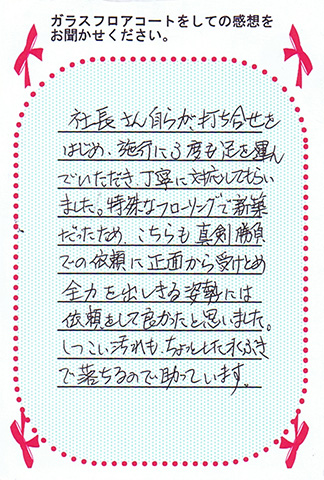 ガラスフロアコートをしての感想を
お聞かせください。
社長さん自らが、打ち合せを
はじめ、施行に3度も足を運ん
でいただき、丁寧に対応してもらい
ました。特殊なフローリングで新築
だったため、こちらも真剣勝負
での依頼に正面から受けとめ
全力を出しきる姿勢には
依頼をして良かったと思いました。
しつこい汚れも、ちょっとした水ぶき
で落ちるので助かっています。